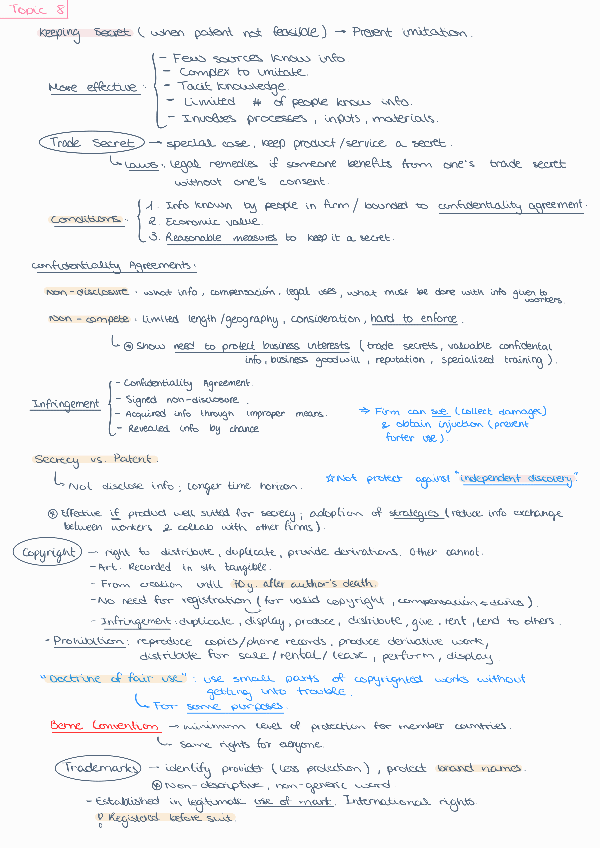 Topic 8
Keeping Secret (when patent not feasible) → Prevent imitation.
More effective:
- Few sources know info
- Complex to imitate.
- Tacit knowledge.
- Limited # of people know info.
- Involves processes, inputs, materials.
Trade Secret → special case, keep product/service a secret.
Laws: legal remedies if someone benefits from one's trade secret
without one's consent.
Conditions:
1. Info known by people in firm / bounded to confidentiality agreement.
2. Economic value.
3. Reasonable measures to keep it a secret.
Confidentiality Agreements:
Non-disclosure: what info, compensación, legal uses, what must be done with info given to
workers.
Non-compete: limited length/geography, consideration, hard to enforce.
Show need to protect business interests (trade secrets, valuable confidental
info, business goodwill, reputation, specialized training).
Infringement
- Confidentiality Agreement.
- Signed non-disclosure.
- Acquired info through improper means.
- Revealed info by chance
⇒ Firm can sue (collect damages)
& obtain injuction (prevent
furter use).
Secrecy vs. Patent.
Not disclose info; longer time horizon.
☆Not protect against "independent discovery".
Effective if product well suited for secrecy; adoption of strategies (reduce info exchange
between workers & collab with other firms).
Copyright → right to distribute, duplicate, provide derivations. Other cannot.
- Art. Recorded in sth tangible.
- From creation until 70y. after author's death.
- No need for registration (for valid copyright, compensación).
- Infringement: duplicate, display, produce, distribute, give, rent, lend to others.
- Prohibition: reproduce copies/phone records, produce derivative work,
distribute for sale/rental/lease, perform, display
"Doctrine of fair use": use small parts of copyrighted works without
getting into trouble.
For some purposes.
Berne Convention → minimum level of protection for member countries.
Same rights for everyone.
Trademarks → identify provider (less protection), protect brand names.
Non-descriptive, non-generic word
- Established in legitimate use of mark. International rights.
! Registered before suit.